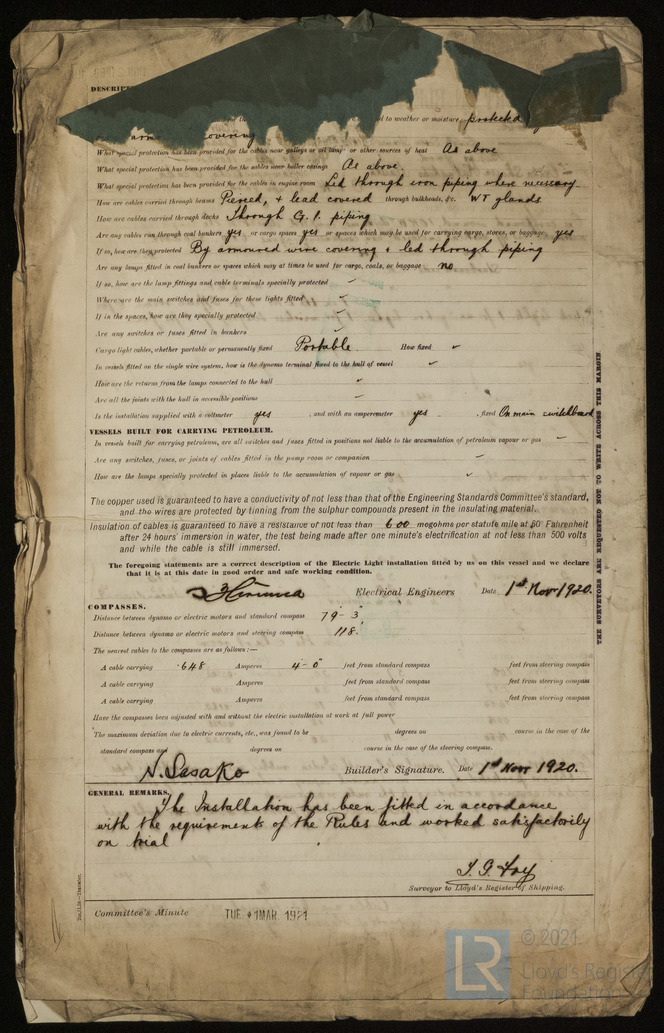 DESCRIPT
to weather or moisture protected
covering
What special protection has been provided for the cables near galleys or oil lamps or other sources of heat As above
What special protection has been provided for the cables near boiler casings As above.
What special protection has been provided for the cables in engine room Led through iron piping where necessary
How are cables carried through beams Pierced, & lead covered through bulkheads, &c. WT glands
How are cables carried through decks Through G. I. piping
Are any cables run through coal bunkers yes or cargo spaces yes or spaces which may be used for carrying cargo, stores, or baggage yes
If so, how are they protected By armoured wire covering & led through piping
Are any lamps fitted in coal bunkers or spaces which may at times be used for cargo, coals, or baggage no
If so, how are the lamp fittings and cable terminals specially protected ✓
Where are the main switches and fuses for these lights fitted ✓
If in the spaces, how are they specially protected ✓
Are any switches or fuses fitted in bunkers ✓
Cargo light cables, whether portable or permanently fixed Portable How fixed ✓
In vessels fitted on the single wire system, how is the dynamo terminal fixed to the hull of vessel ✓
How are the returns from the lamps connected to the hull ✓
Are all the joints with the hull in accessible positions ✓
Is the installation supplied with a voltmeter yes , and with an amperemeter yes , fixed On main switchboard
VESSELS BUILT FOR CARRYING PETROLEUM.
In vessels built for carrying petroleum, are all switches and fuses fitted in positions not liable to the accumulation of petroleum vapour or gas ✓
Are any switches, fuses, or joints of cables fitted in the pump room or companion ✓
How are the lamps specially protected in places liable to the accumulation of vapour or gas ✓
The copper used is guaranteed to have a conductivity of not less than that of the Engineering Standards Committee's standard,
and the wires are protected by tinning from the sulphur compounds present in the insulating material.
Insulation of cables is guaranteed to have a resistance of not less than 600 megohms per statute mile at 60° Fahrenheit
after 24 hours' immersion in water, the test being made after one minute's electrification at not less than 500 volts
and while the cable is still immersed.
The foregoing statements are a correct description of the Electric Light installation fitted by us on this vessel and we declare
that it is at this date in good order and safe working condition.
Electrical Engineers Date 1st Nov 1920.
COMPASSES.
Distance between dynamo or electric motors and standard compass 79'-3"
Distance between dynamo or electric motors and steering compass 118'
The nearest cables to the compasses are as follows:—
A cable carrying .648 Amperes 4-0" feet from standard compass feet from steering compass
A cable carrying Amperes feet from standard compass feet from steering compass
A cable carrying Amperes feet from standard compass feet from steering compass
Have the compasses been adjusted with and without the electric installation at work at full power
The maximum deviation due to electric currents, etc., was found to be degrees on course in the case of the
standard compass and degrees on course in the case of the steering compass.
N. Sasako Builder's Signature. Date 1st Nov 1920.
GENERAL REMARKS.
The Installation has been fitted in accordance
with the requirements of the Rules and worked satisfactorily
on trial
Surveyor to Lloyd's Register of Shipping.
Committee's Minute TUE. 1 MAR. 1921
THE SURVEYORS ARE REQUESTED NOT TO WRITE ACROSS THIS MARGIN.
LR
© 2021
Lloyd's Register
Foundation